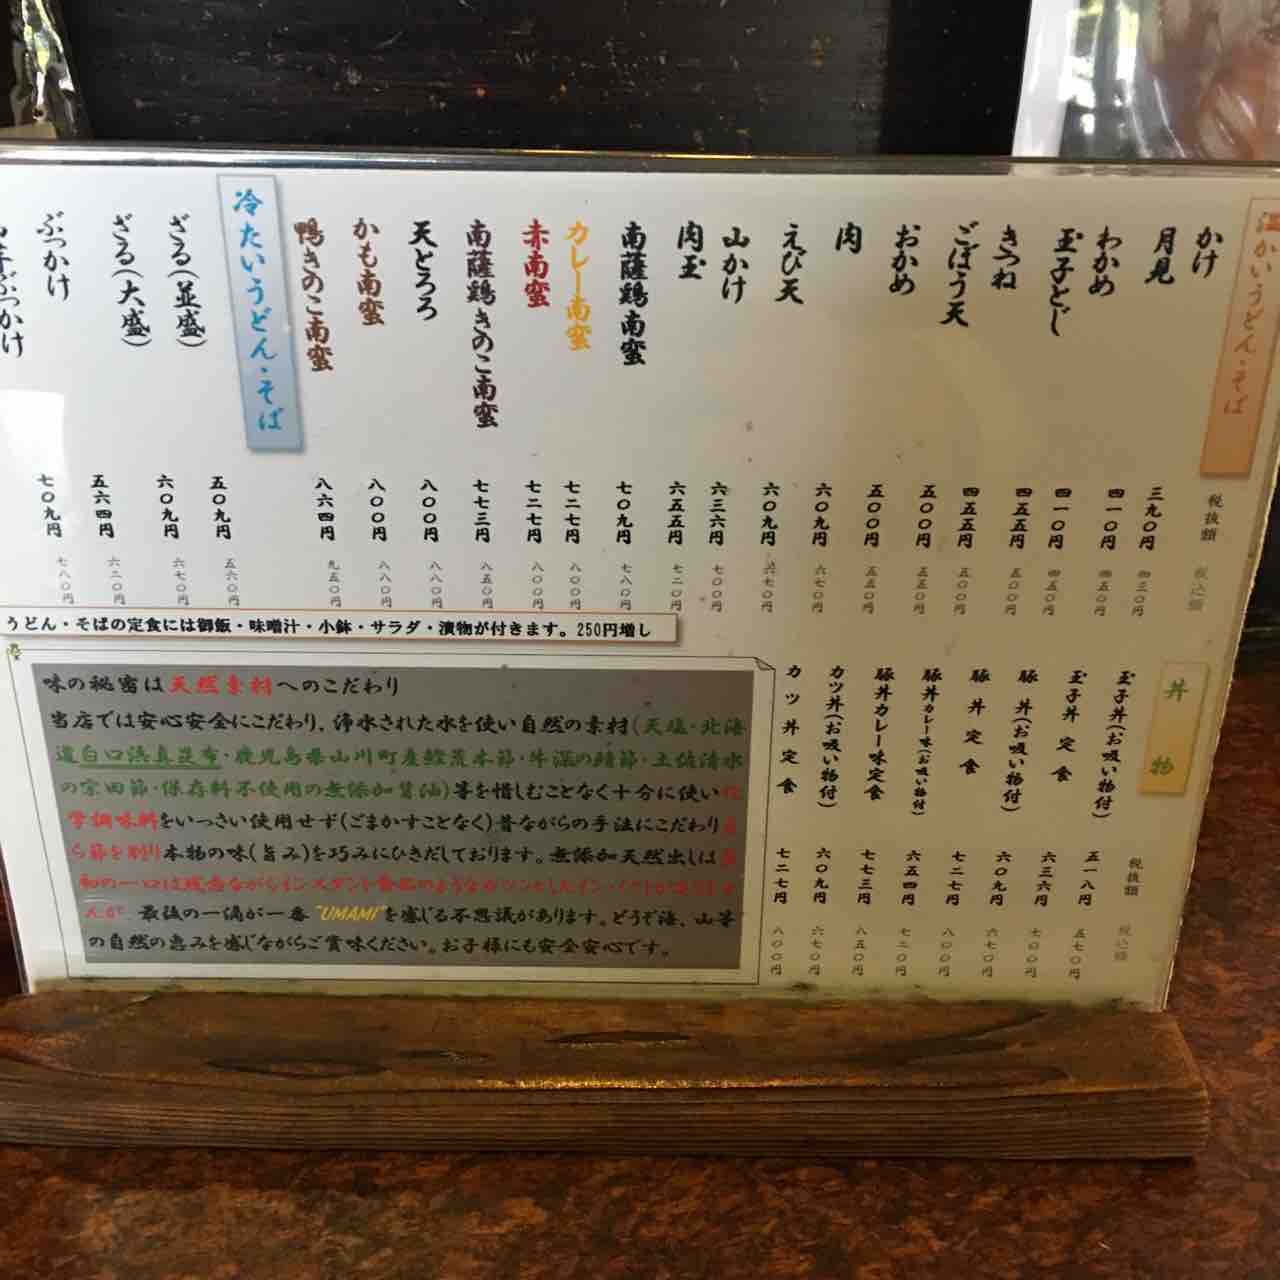 温かいうどん・そば
税抜額 税込額
かけ 三九〇円 四三〇円
月見 四一〇円 四五〇円
わかめ 四一〇円 四五〇円
玉子とじ 四五五円 五〇〇円
きつね 四五五円 五〇〇円
ごぼう天 五〇〇円 五五〇円
おかめ 五〇〇円 五五〇円
肉 六〇九円 六七〇円
えび天 六〇九円 六七〇円
山かけ 六三六円 七〇〇円
肉玉 六五五円 七二〇円
南薩鶏南蛮 七〇九円 七八〇円
カレー南蛮 七二七円 八〇〇円
赤南蛮 七二七円 八〇〇円
南薩鶏きのこ南蛮 七七三円 八五〇円
天とろろ 八〇〇円 八八〇円
かも南蛮 八〇〇円 八八〇円
鴨きのこ南蛮 八六四円 九五〇円
冷たいうどん・そば
ざる(並盛) 五〇九円 五六〇円
ざる(大盛) 六〇九円 六七〇円
ぶっかけ 五六四円 六二〇円
ぶっかけ 七〇九円 七八〇円
うどん・そばの定食には御飯・味噌汁・小鉢・サラダ・漬物が付きます。250円増し
丼物
税抜額 税込額
玉子丼(お吸い物付) 五一八円 五七〇円
玉子丼定食 六三六円 七〇〇円
豚丼(お吸い物付) 六〇九円 六七〇円
豚丼定食 七二七円 八〇〇円
豚丼カレー味(お吸い物付) 六五四円 七二〇円
豚丼カレー味定食 七七三円 八五〇円
カツ丼(お吸い物付) 六〇九円 六七〇円
カツ丼定食 七二七円 八〇〇円
味の秘密は天然素材へのこだわり
当店では安心安全にこだわり、浄水された水を使い自然の素材(天塩・北海
道白口浜真昆布・鹿児島県山川町産鰹荒本節・牛深の鯖節・土佐清水
の宗田節・保存料不使用の無添加醤油)等を惜しむことなく十分に使い化
学調味料をいっさい使用せず(ごまかすことなく)昔ながらの手法にこだわり
ら節を削り本物の味(旨み)を巧みにひきだしております。無添加天然出しは最
初の一口は残念ながらインスタント食品のようなガツンとしたインパクトがありませ
んが、最後の一滴が一番"UMAMI"を感じる不思議があります。どうぞ海、山等
の自然の恵みを感じながらご賞味ください。お子様にも安全安心です。